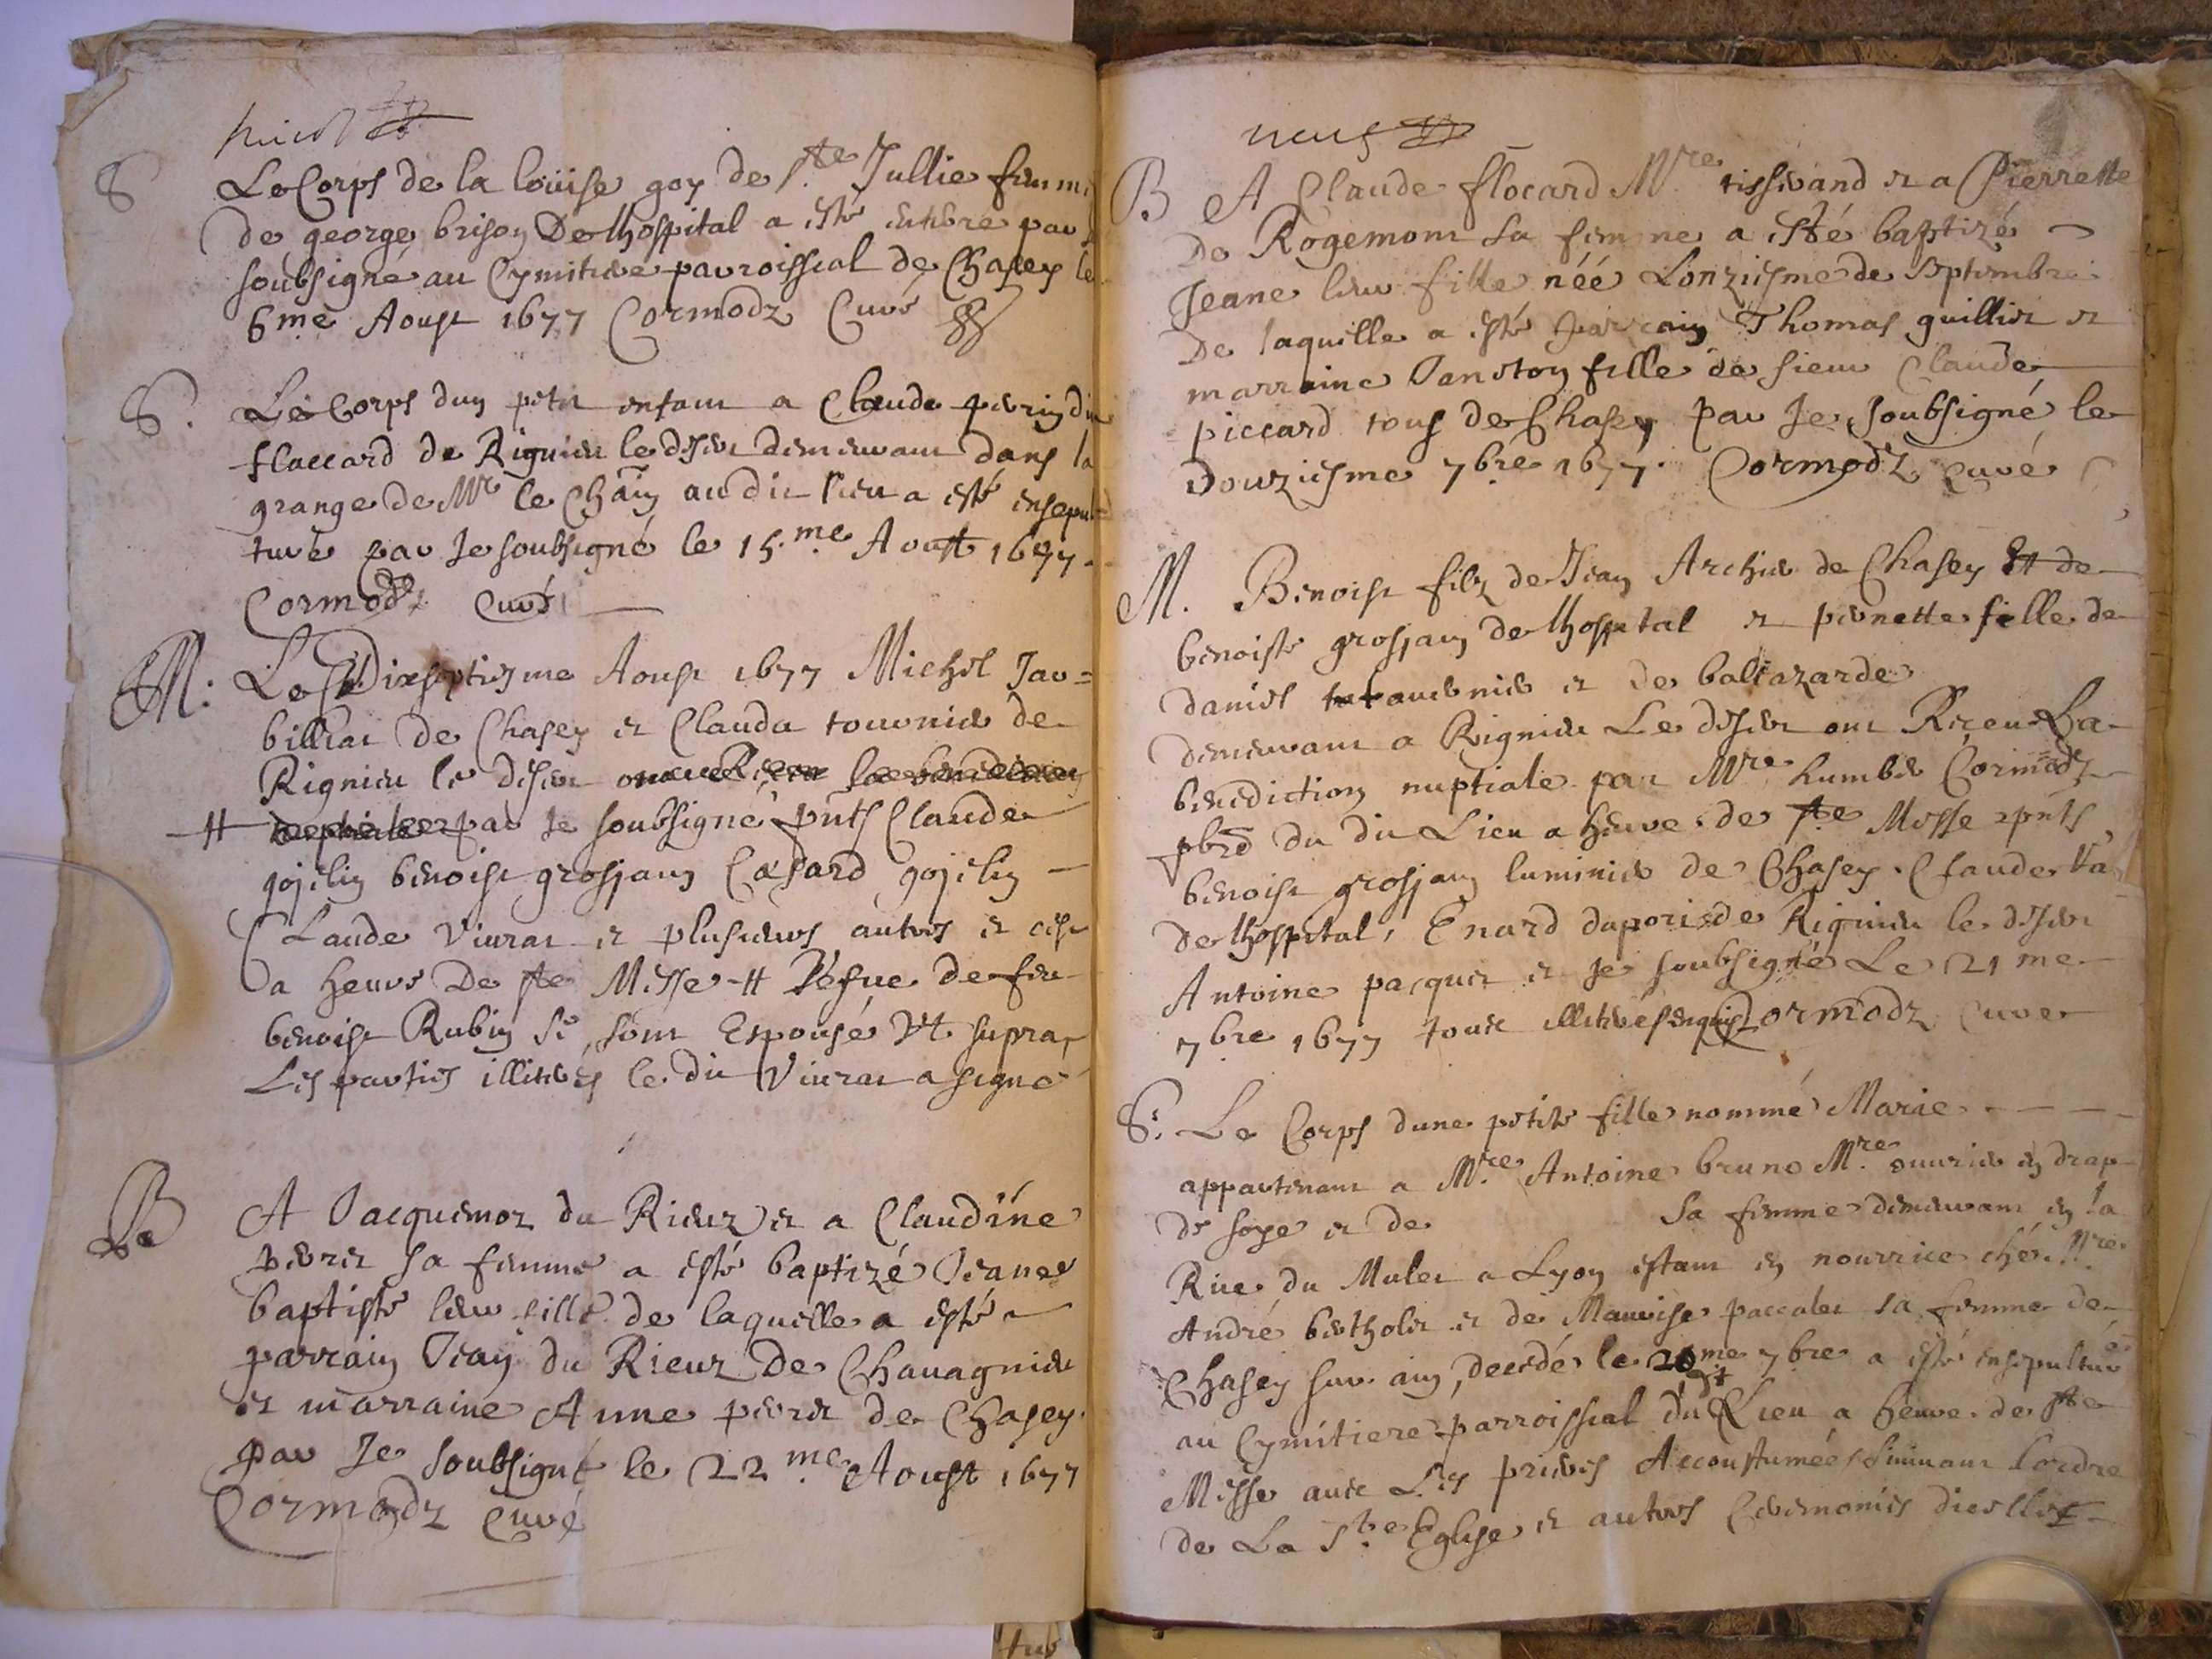 huict
S Le Corps de la loüise goy de Ste Jullie femme
de george brison De lhospital a esté enterré par
soubsigné au Cymitiere parroissial de Chasey le
6me Aoust 1677 Cormodz Curé
S. Le Corps dun petit enfant a Claude perrin dit
flaccard de Rignieu le desert demeurant dans la
grange de Mr le Chãin audit lieu a esté ensepul=
turé par Je soubsigné le 15.me Aoust 1677.
Cormodz Curé
M. Le Dixseptiesme Aoust 1677 Michel Jar=
billiat de Chasey et Clauda tournier de
Rignieu le desert ont Receu la benediction
# nuptiale par Je soubsigné pñts Claude
gojelin benoist grosjean Casard gojelin
Claude Viurat et plusieurs autres et cest
a heure De ste Messe # Vefue de feu
benoist Rubin se sont Espousé Vt supra
Les parties illiteres le dit Viurat a signé
B A Jacquemoz du Rieuz et a Claudine
perret sa femme a esté baptizé Jeane
baptiste leur fille de laquelle a esté
parrain Jean du Rieuz De Chauagnieu
et marraine Anne perret de Chasey.
par Je soubsigné le 22.me Aoust 1677
Cormodz Curé
neuf
B A Claude flocard Mre tisserand et a Pierrette
De Rogemont sa femme a esté baptizé
Jeane leur fille néé Lonziesme de Septembre
De laquelle a esté parrain Thomas guillet et
marraine Janeton fille de sieur Claude
piccard tous de Chasey par Je soubsigné le
Douziesme 7bre 1677. Cormodz Curé
M. Benoist filz de Jean Archier de Chasey Et de
benoiste grosjean de lhospital et pernette fille de
daniel tauernier et de baltazarde
demeurant a Rignieu Le desert ont Receu La
benediction nuptiale par Mre humber Cormodz
pbrẽ du dit Lieu a heure de ste Messe pñts
benoist grosjean luminier de Chasey. Claude
De lhospital, Enard duport de Rignieu le desert
Antoine pacquet et Je soubsigné Le 21me
7bre 1677 touts illiteres enquis Cormodz Curé
S. Le Corps dune petite fille nommé Marie
appartenant a Mre Antoine bruno Mre ouurier en drap
de soye et de sa femme demeurant en la
Rüe du Mulet a Lyon estant en nourrice chés Mre
André bertholet et de Maurise paccalet sa femme de
Chasey sur ain, decedé le 20me 7bre a esté ensepulturé
au Cymitiere parroissial dudt Lieu a heure de ste
Messe auec Les prieres Accoustumées suiuant lordre
de La Ste Eglise et autres Ceremonies dicelle